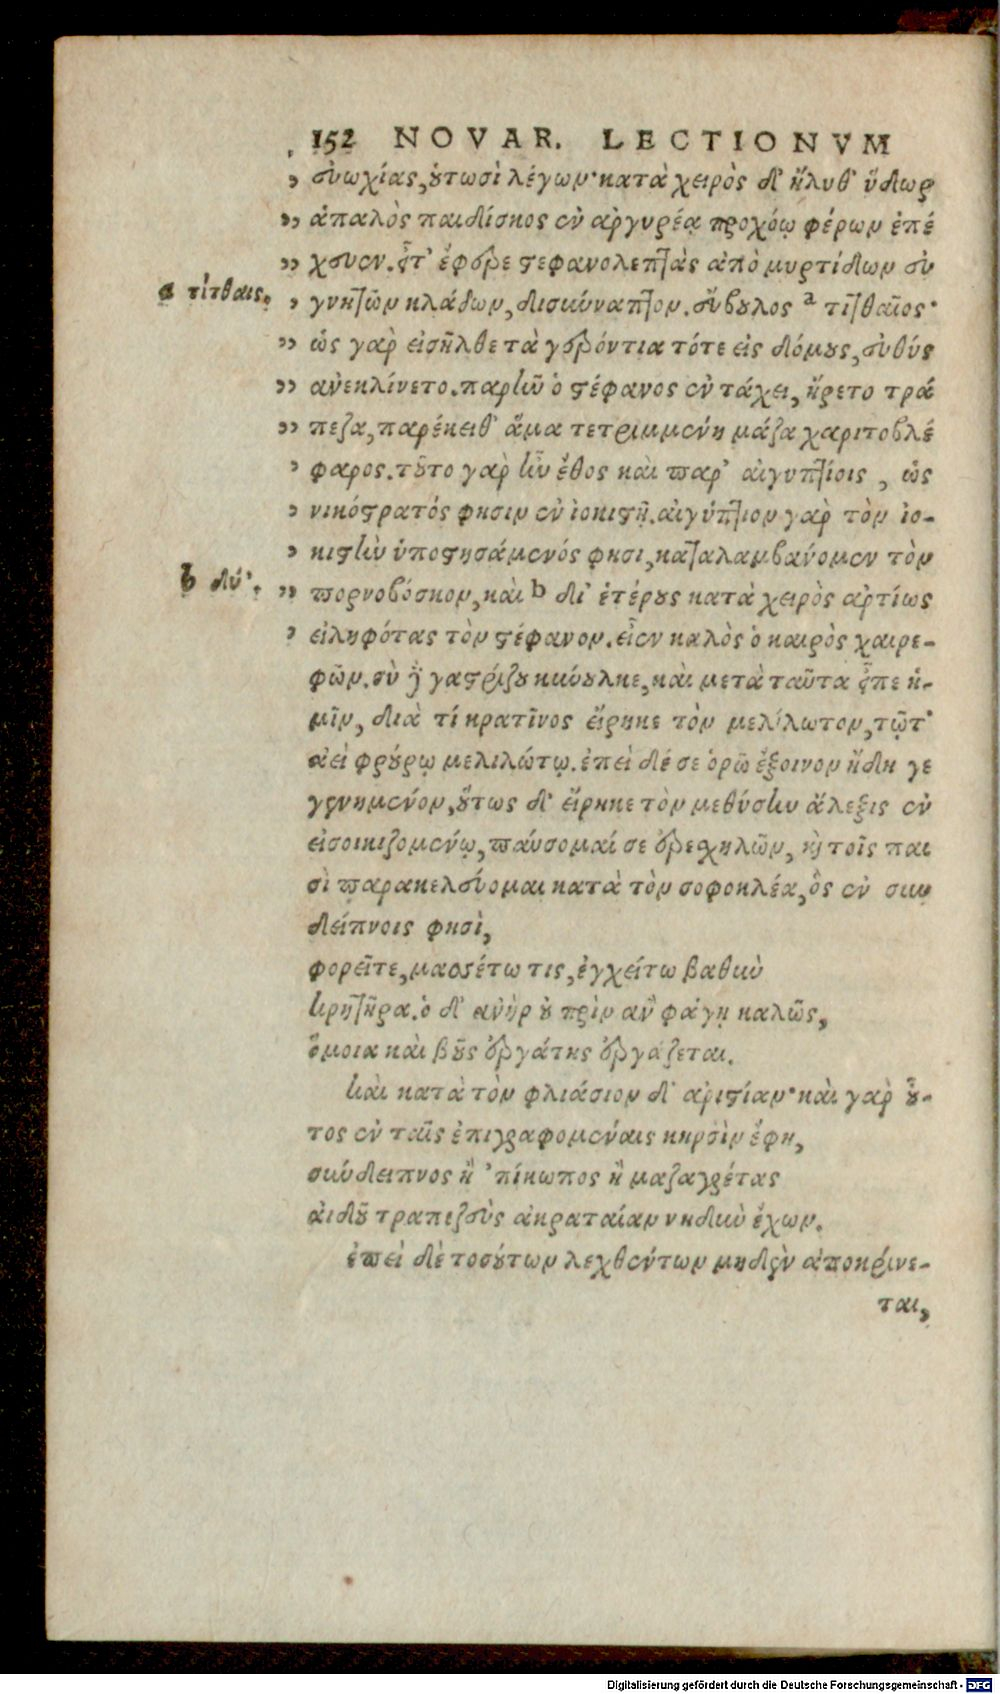 152 NOVAR. LECTIONVM
„ εὐωχίας, οὑτωσὶ λέγων· κατὰ χειρὸς δ' ἤλυθ' ὕδωρ
„ ἁπαλὸς παιδίσκος ἐν ἀργυρέᾳ προχόῳ φέρων ἐπέ
„ χευεν. εἶτ' ἔφερε στεφανολεπτὰς ἀπὸ μυρτίδων εὐ
a τίτθαις.
„ γνητῶν κλάδων, δισκύναπτον. εὔβουλος a τιτθαῖος·
„ ὡς γὰρ εἰσῆλθε τὰ γερόντια τότε εἰς δόμους, εὐθὺς
„ ἀνεκλίνετο. παρῆν ὁ στέφανος ἐν τάχει, ἤρετο τρά
„ πεζα, παρέκειθ' ἅμα τετριμμένη μάζα χαριτοβλέ
„ φαρος. τοῦτο γὰρ ἦν ἔθος καὶ παρ' αἰγυπτίοις, ὡς
„ νικόστρατός φησιν ἐν ἰοκιστῇ. αἰγύπτιον γὰρ τὸν ἰο-
„ κιστὴν ὑποστησάμενός φησι, καταλαμβάνομεν τὸν
b δύ'.
„ πορνοβόσκον, καὶ b δι' ἑτέρους κατὰ χειρὸς ἀρτίως
„ εἰληφότας τὸν στέφανον. εἶεν καλὸς ὁ καιρὸς χαιρε-
φῶν. σὺ δὲ γαστρίζου κύουλκε, καὶ μετὰ ταῦτα εἶπε ἡ-
μῖν, διὰ τί κρατῖνος εἴρηκε τὸν μελίλωτον, τῷτ'
ἀεὶ φρούρῳ μελιλώτῳ. ἐπεὶ δέ σε ὁρῶ ἔξοινον ἤδη γε
γενημένον, οὕτως δ' εἴρηκε τὸν μεθύσην ἄλεξις ἐν
εἰσοικιζομένῳ, παύσομαί σε ἐρεσχηλῶν, καὶ τοῖς παι
σὶ παρακελεύομαι κατὰ τὸν σοφοκλέα, ὃς ἐν συν
δείπνοις φησὶ,
φορεῖτε, μασσέτω τις, ἐγχείτω βαθὺν
κρητῆρα. ὁ δ' ἀνὴρ οὐ πρὶν ἂν φάγῃ καλῶς,
ὅμοια καὶ βοῦς ἐργάτης ἐργάζεται.
καὶ κατὰ τὸν φλιάσιον δ' ἀριστίαν· καὶ γὰρ οὗ-
τος ἐν ταῖς ἐπιγραφομέναις κηρσὶν ἔφη,
σύνδειπνος ἢ 'πίκωπος ἢ μαζαγρέτας
ἀιδοῦ τραπεζεὺς ἀκραταίαν νηδὺν ἔχων.
ἐπεὶ δὲ τοσούτων λεχθέντων μηδὲν ἀποκρίνε-
ται,
Digitalisierung gefördert durch die Deutsche Forschungsgemeinschaft - DFG